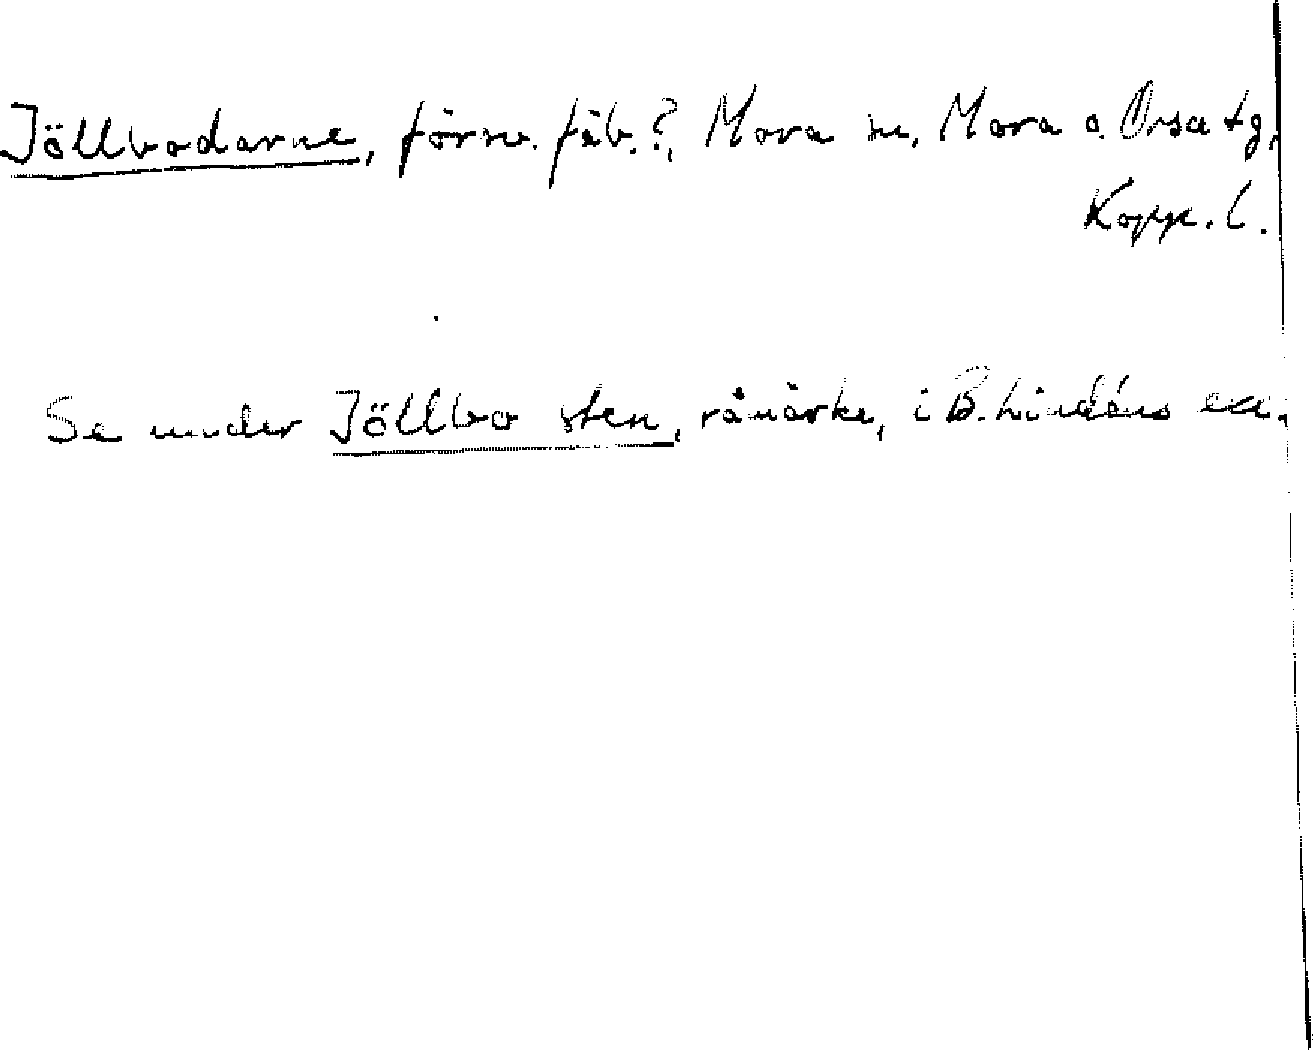 Jöllbodarne, försv. fäb.?, Mora sn, Mora o. Orsa tg,
Kopp. l.
Se under Jöllbo sten, råmärke, i B. Lindéns exc.